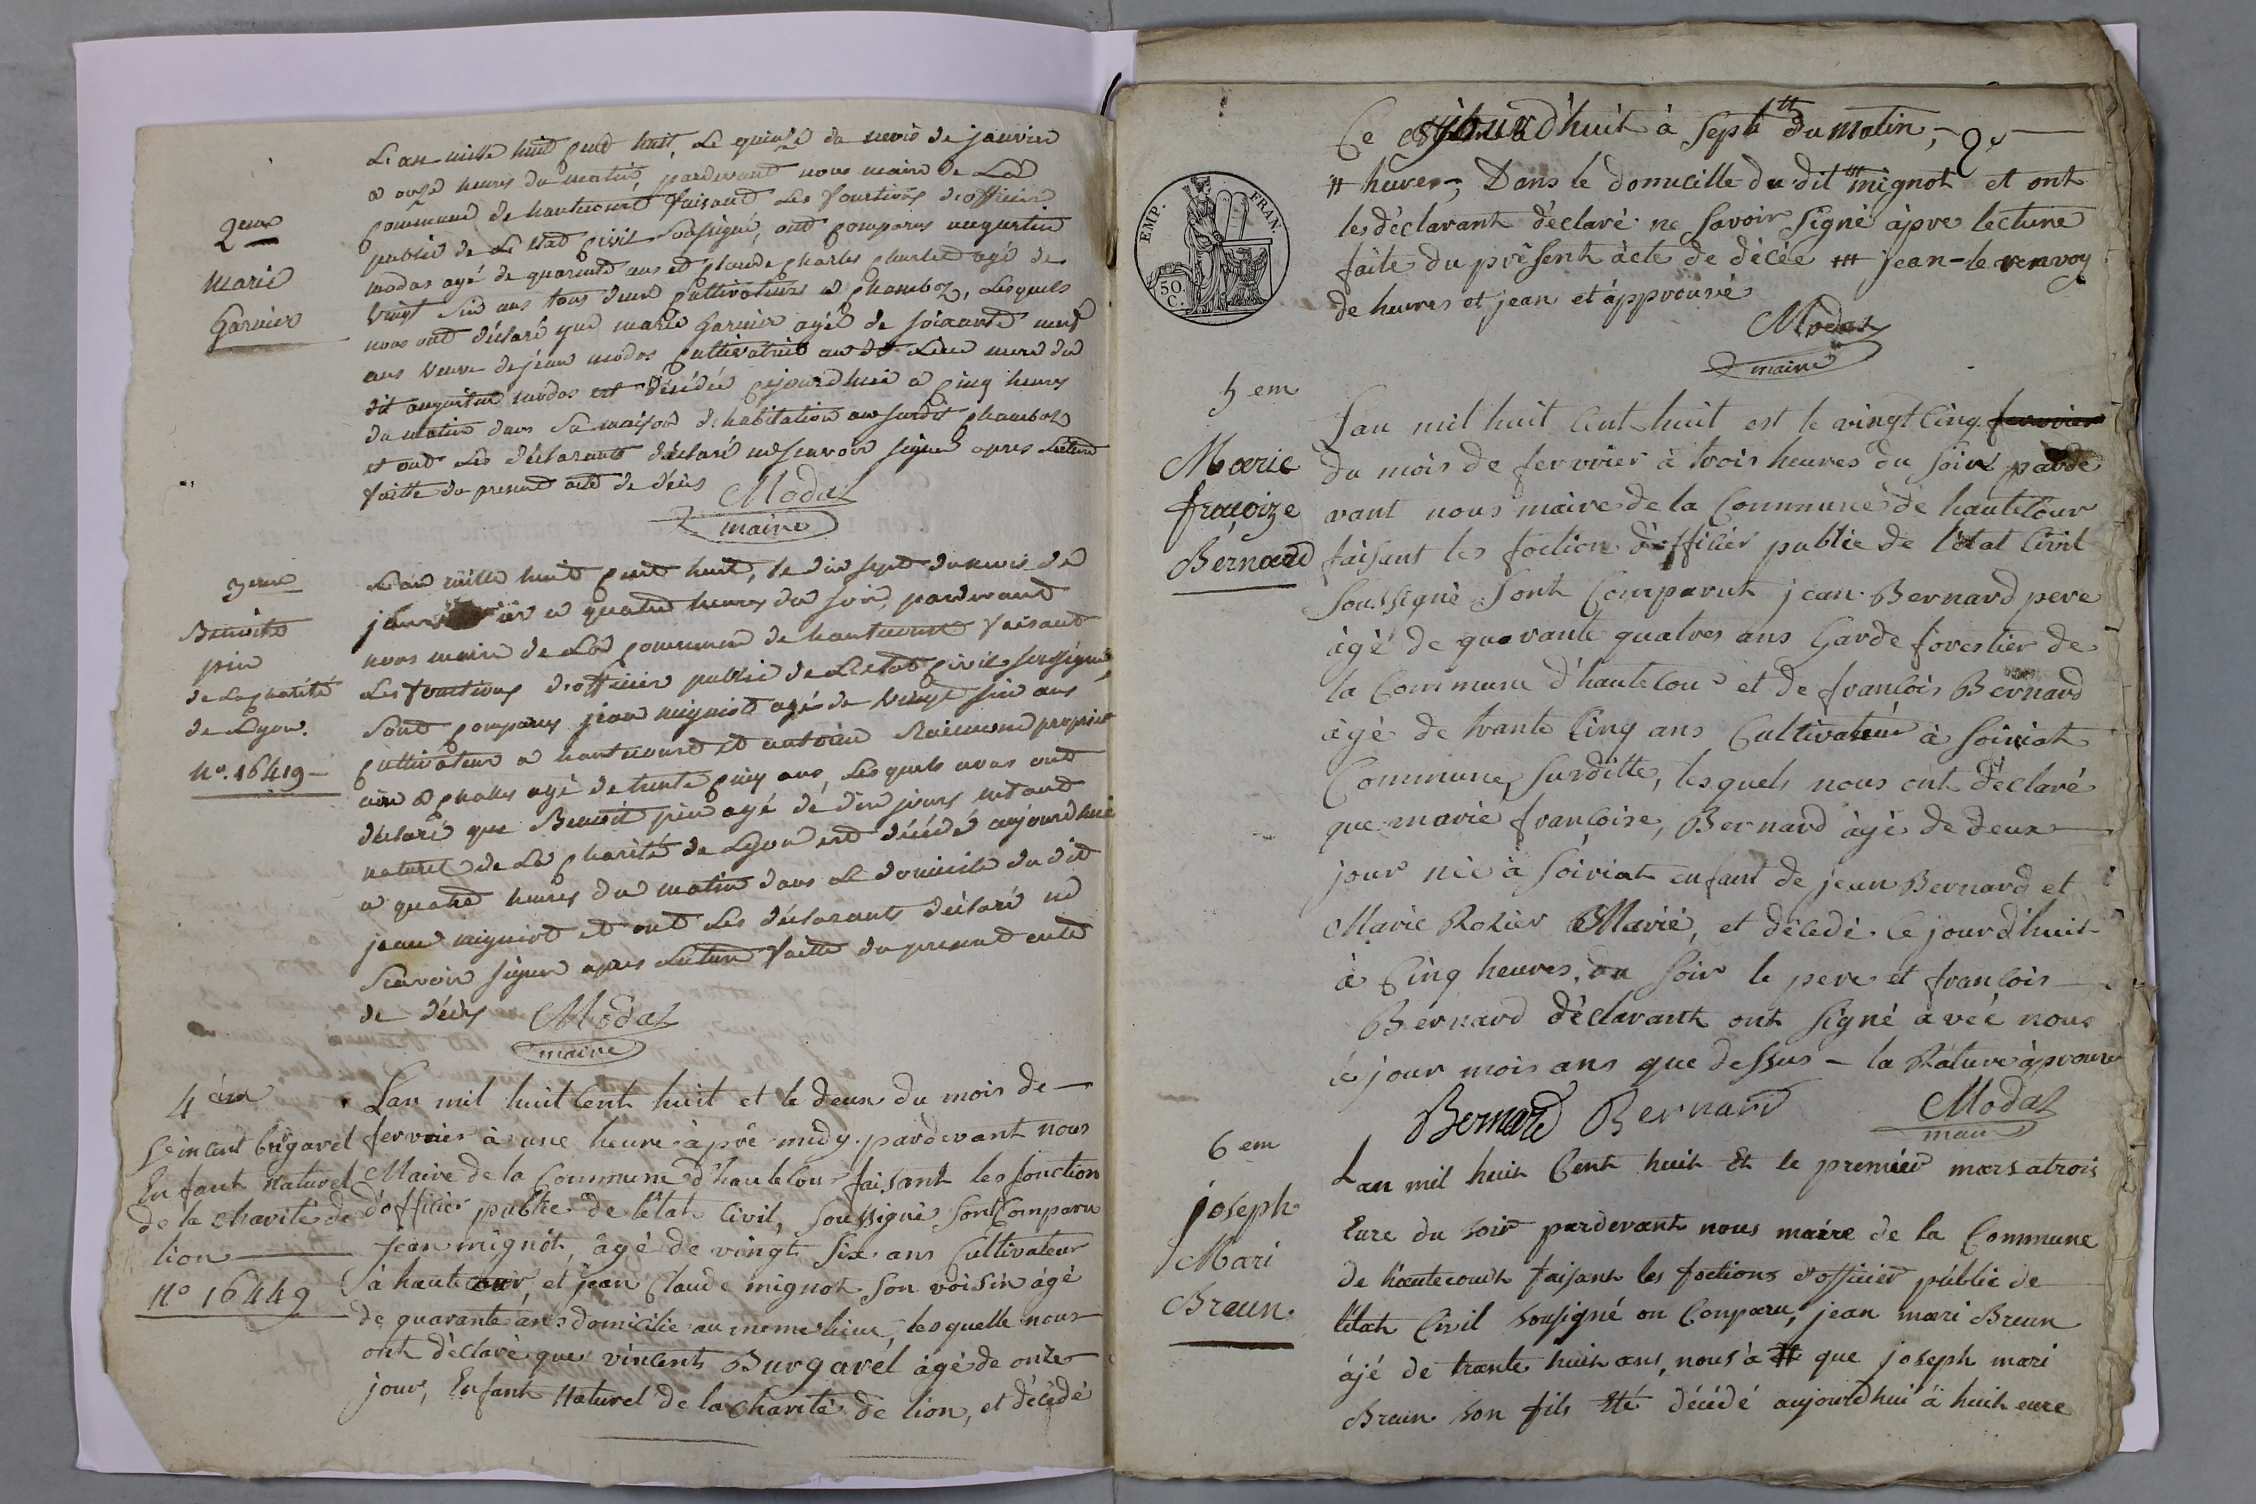 2eme
marie
Garnier
L'an mille huit cent huit, le quinze du mois de janvier
a onze heures du matin, pardevant nous maire de La
commune de hautecourt faisant Les fonctions d'officier
public de L'Etat civil soussigné, ont comparus augustin
modas agé de quarante ans et claude charles charlet agé de
vingt six ans tous deux cultivateurs a chamboz, Lesquels
nous ont déclaré que marie Garnier agée de soixante neuf
ans veuve de jean modas cultivatrice au dt Lieu mere du
dit augustin modas est décédée cejourd'huie a cinq heures
du matin dans sa maison d'habitation au susdit chamboz
et ont Les déclarants déclaré ne scavoir signer apres Lecture
faitte du present acte de décès Modas
maire
3eme
Benoite
pin
de La charité
de Lyon.
No. 16419
L'an mille huit cent huit, le dix sept du mois de
janvier a quatre heures du soir, pardevant
nous maire de La commune de hautecourt faisant
Les fonctions d'officier public de L'etat civil soussigné
sont comparus jean migniot agé de vingt six ans
cultivateur a hautecourt et antoine Raimond propriet
aire a challes agé de trente cinq ans, Lesquels nous ont
déclaré que Benoit pin agé de dix jours enfant
naturel de La charité de Lyon est décédé aujourd'huie
a quatre heures du matin dans Le domicile du dit
jean migniot et ont Les déclarants déclaré ne
scavoir signer apres Lecture faitte du present acte
de décès Modas
maire
4 èm
Seincent brigaret
Enfant naturel
de la charité de
lion
No 16449
Lan mil huit Cent huit et le deux du mois de
fervrier à une heure àprè midy pardevant nous
Maire de la Commune d'hautecour faisant les fonction
d'officier public de l'état Civil, Soussigné Sont Comparu
Jean mignot, âgé de vingt Six ans Cultivateur
à hautecour, et jean Claude mignot Son voisin âgé
de quarante ans domicilie au meme lieux, lesquelle nous
ont déclaré que vincent Burgarél âgé de onze
jour, Enfant Naturel de la charité de lion, et décédé
EMP. FRAN.
50
C.
Ce jourd'huit à Sept tt du matin,
tt heures, Dans le domicille du dit ttt mignot et ont
les déclarant déclaré ne Savoir Signé àpre lecture
faite du présent àcte de décée ttt jean - le renvoy
de heures et jean et àpprouvé
Modas
maire
5 em
Marie
fraçoize
Bernard
Lan mil huit Cent huit est le vingt Cinq fervrier
du mois de fervrier à trois heures du Soir parde
vant nous maire de la Commune de hautecour
faisant les foction d'officier public de l'état Civil
Soussigné Sont Comparut jean Bernard pere
âgé de quarante quatres ans Garde forestier de
la Commune d'hautecour et de francois Bernard
âgé de trante Cinq ans Cultivateur à Soiriat
Commune, Surditte, lesquels nous ont déclaré
que marie francoise, Bernard âgé de deux
jour née à Soiriat enfant de jean Bernard et
Marie Rozier Marié, et décedé Ce jourd'huit
à Cinq heures du Soir le pere et francois
Bernard déclarant ont Signé àvec nous
lé jour mois ans que dessus - la Rature àprouvé
Bernard Bernard Modas
maire
6 em
joseph
Mari
Breun.
Lan mil huit Cent huit Et le premier mars a trois
Eure du soir pardevant nous maire de la Commune
de hautecourt faisant les foctions d'officier public de
létat Civil sousigné on Comparu, jean mari Breun
âjé de trante huit ans, nous à tt que joseph mari
Breun son fils Eté décédé aujourdhui à huit eure